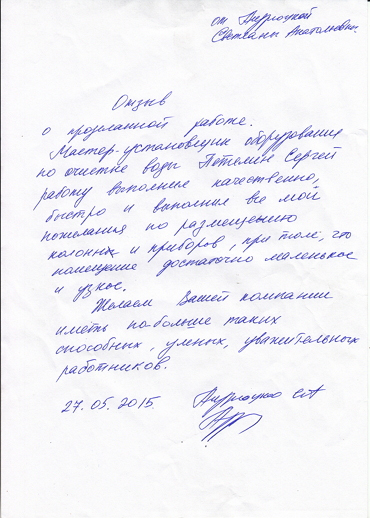 от
Светланы Анатольевны.
Отзыв
о проделанной работе.
Мастер-установщик оборудования
по очистке воды Петелин Сергей
работу выполнил качественно,
быстро и выполнил все мои
пожелания по размещению
колонн и приборов, при том, что
помещение достаточно маленькое
и узкое.
Желаем Вашей компании
иметь по-больше таких
способных, умных, уважительных
работников.
27.05.2015.